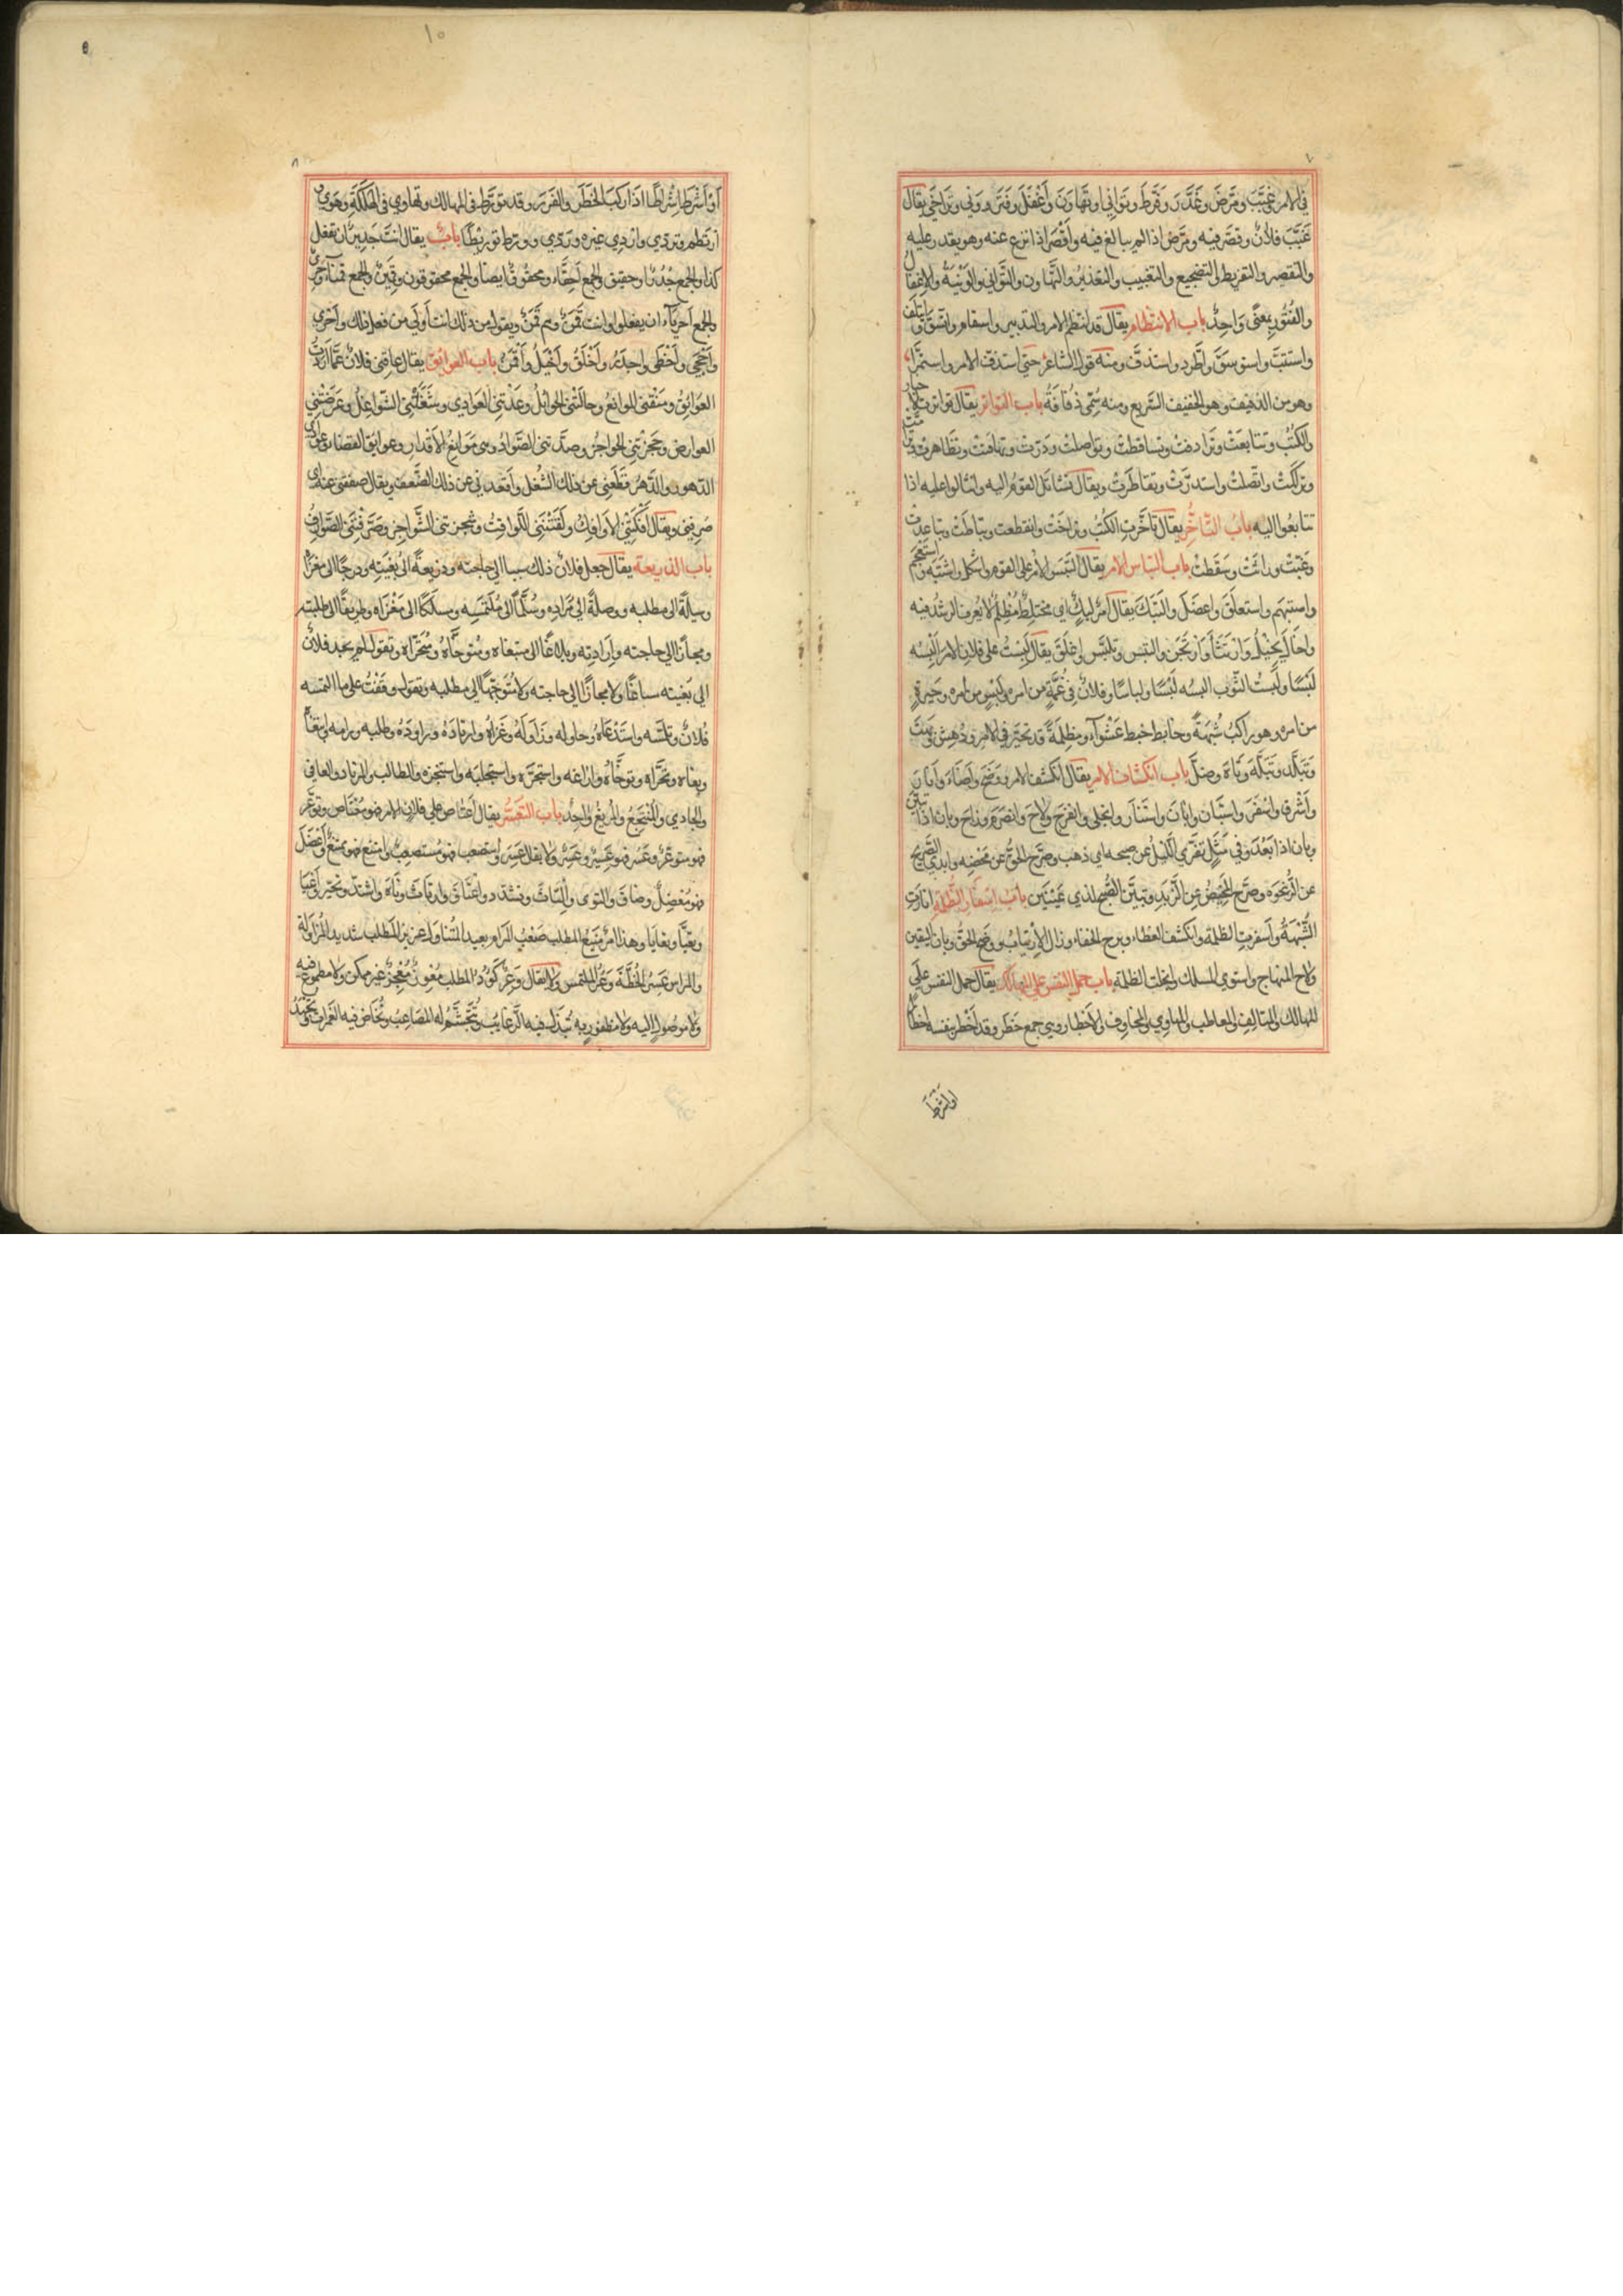 ٧
في الامر غَبَّبَ ومَرَّضَ وعَذَّرَ وفَرَّطَ وتَوَانِي وتَهَاوَنَ وَاَغْفَلَ وفَتَرَ ووَنِي وتَرَاخَي يقال
غَبَّبَ فلانٌ وقصَّر فيه ومَرَّضَ اذا لم يبالغ فيه وَاَقْصَرَ اذا نزع عنه وهو يقدر عليه
والتقصير والتفريط والتضجيع والتغبيب والتعذيرُ والتَّهاون والتَّواني والوَنْيَةُ والاِغفالُ
والفُتُور بمعنًى وَاحِدٌ باب الانتظام يقال قد انتظم الامر والتدبير واستقام واتَّسَقَ وائتَلَفَ
واستتبَّ واستوسَقَ واطَّرد واستذفَّ ومنه قول الشاعر حتي استذفَّ الامر واستمرَّا
وهو من الذفيف وهو الخفيف السَّريع ومنه سُمّي ذُفَافَةُ باب التواتر يقال تواترت الاخبار
والكُتُب وتتابعَتْ وتَرَادفتْ وتساقطتْ وتواصلتْ ودَرَّتْ وتهافتْ وتظَاهرتْ
وتراكبتْ واتّصلتْ واستدرَّتْ وتقاطَرَتْ ويقال تَسَاتَلَ القوم اليه وانثالوا عليه اذا
تتابعُوا اليه بابُ التَّاخُّر يقال تاَخَّرت الكتُبُ وتراخَتْ وانقطعت وتباطَت وتباعدتْ
وغبَّتْ وراثَتْ وسَقَطتْ باب التباس الامر يقال التَبَسَ الامر على القوم واشكل واشتبَه واستعجم
واستبهَم واستغلَقَ واعضَلَ والتَبَكَ يقال امرٌ لبِكٌ اي مختلِطٌ مُظلِمٌ لا يُعرف الرشدُ فيه
واَخَالَ يُخيْلُ وَارْتَثَأَ وَارْتَجَنَ والتبَس وتلبَّس واغلَقَ يقال لَبَسْتُ على فلان الامر اَلْبِسُه
لَبْسًا ولَبِستُ الثَّوب البسُه لُبْسًا ولباسًا وفلانٌ في غُمَّةٍ من امره ولَبْسٍ من امره وحَيرةٍ
من امره وهو راكبُ شُبهَةٍ وخابط خبط عَشْوَآء ومظلِمَةً قد تحيَّر في الامر ودُهِشَ وبَهِتَ
وتَبَلَّد وتَبَلَّهَ وتَاهَ وضلَّ باب انكشاف الامر يقال انكشف الامر ووَضَحَ واَضَاءَ واَبَانَ
واَشْرقَ واسْفَرَ واستَبَان وابانَ واستَنَار وانجلى وانفرَجَ ولاحَ وانصَرَمَ وزاحَ وبان اذا تبيَّنَ
وبان اذا بَعُدَ وفي مَثَلٍ تفرّي الليلُ عن صبحه اي ذهب وصرَّح الحقُّ عن مَحْضِه وابدي الصَّريحُ
عن الرُّغوَة وصرَّح المَخْضُ عن الزَّبَدِ وتبيَّنَ الصُّبح لذي عَيْنَيَن بابُ اسفار الظُّلمة انارتِ
الشُّبْهَةُ وَاَسفرت الظلمة وانكشف الغطاء وبرح الخفاء وزال الاِرتيابُ ووضح الحقُّ وبان اليقين
ولاح المنهاج واستوي المسلك وانجلت الظلمة باب حمل النفس على المهالك يقال حمل النفس على
المهالك والمتالِف والمعاطب والمهاوي والمخاوف والاَخطار وهي جمع خَطَر وقد اَخْطر بنفسه اخطارًا
اَوْاَشْرَطَ
٨
١٥
اَوْاَشْرَطَ اِشْرَاطًا اذا ركبَ الخَطَر والغرَر وقد تورَّط في المهالك وتهاوي في الهَلَكَةِ وهَوي
ارتطم وتردّي وازدي غيرَه وردّي وورّط توريطًا بابٌ يقال انتَ جَديرٌ ان تفعل
كذا والجمع جُدُرٌ وحقيق والجمع اَحِقَّاء ومحقُوقٌ ايضًا والجمع محقوقون وقَمِينٌ والجمع قُمَنآءُ وحَريٌّ
والجمع اَحريآء ان يفعلوا وانت قَمَنٌ وهم قَمَنٌ ويقول من ذلك انت اَولَي من فعل ذلك واَحْرَي
واَحْجَي واَحْظَى واجدَرُ واَخْلَقُ واَخْيَلُ واَقْمَنُ باب العوائِق يقال عاقني فلانٌ عمَّا اردتُ
العَوَائِقُ ومنَعَتْني الموانعُ وحالَتْني الحوائلُ وعَدَتْنِي العَوَادِي وشَغَلَتْنِي الشَّواغِلُ وعَرَضَتْني
العوارض وحَجَزَتْنِي الحواجزُ وصدَّتني الصَّوادُّ وهي مَوَانِعُ الاَقدار وعوايق القضاء وعَوَادي
الدّهور والدَّهرُ قطَعَنِي عن ذلك الشُغل واَقعدني عن ذلك الضَّعفُ ويقال صفقني عنه اي
صَرفني ويقال اَفكتْنِي الاَوافِكُ ولَفَتَتْنِي اللَّوافِتُ وشجرتني الشَّواجِر وصَرَفَتْني الصَّوارِفُ
باب الذريعة يقال جعل فلانٌ ذلك سببا الي حاجته وذريعةً الي بُغْيَتِه ودرجًا الي مغزَاهُ
وسيلةً الي مطلبه ووصلةً الي مُرَادِه وسُلَّمًا الي مُلْتَمَسِه ومسلكًا الي مَغْزَاه وطريقًا الي طلبته
ومجازًا الي حاجته واِرَادتِه وبلاغًا الي مبتغاه ومُتوخَّاهُ ومُتَحَرَّاهُ وتقول لم يجد فلانٌ
الي بَغيته مساغًا ولا مجازًا الي حاجته ولا مُتَوجَّهًا الي مطلبه وتقول وقَفْتُ على ما التمسَه
فُلانٌ وتلمَّسه واستَدْعَاهُ وحاوله وزَاوَلَهُ وغَزَاهُ وارتادَهُ وراودَهُ وطلبه ورامه وابتغاهُ
وبغاه وتحرَّاه وتوخَّاهُ وازاغه واستجرَّه واستجلبَه واستنجزه والطالب والمرتاد والعافي
والجادي والمنتَجِعُ والمُريغُ واحِدٌ باب التَّعَسُّر يقال اعتاص على فلان الامر فهو مُعْتَاص وتوعَّر
فهو متوعِّرٌ وعَسُر فهو عَسِيرٌ وعَسِرٌ ولا يقال عَسِرَ واستصعب فهو مُستصعِبٌ وامتنع فهو ممتنعٌ واَعضَلَ
فهو مُعضِلٌ وضَاقَ والتوَى والْتَاثَ وتشدَّد واعْتَاقَ وارتَاثَ وتاهَ واشتدَّ وتحيَّر وَاَعْيَا
وتعَيَّا وتعَايَا وهذا امرٌ مَنِيعُ المطلب صَعْبُ المرام بعيدُ المُتَناوَل عزيزُ المَطلب شديدُ المُزاوَلة
والمراس عَسِرُ الخُطَّة وَعْرُ الملتمَس ولا يقال وَعِرٌ كَؤُودُ المطلب مُعْوِزٌ مُعْجِزٌ غير ممكن ولا مطموعٌ فيه
ولا موصُول اليه ولا مظفور به تُبْذَل فيه الرَّغايبُ وتُجَشَّمُ له المصاعبُ وتُخَاضُ فيه الغَمَراتُ